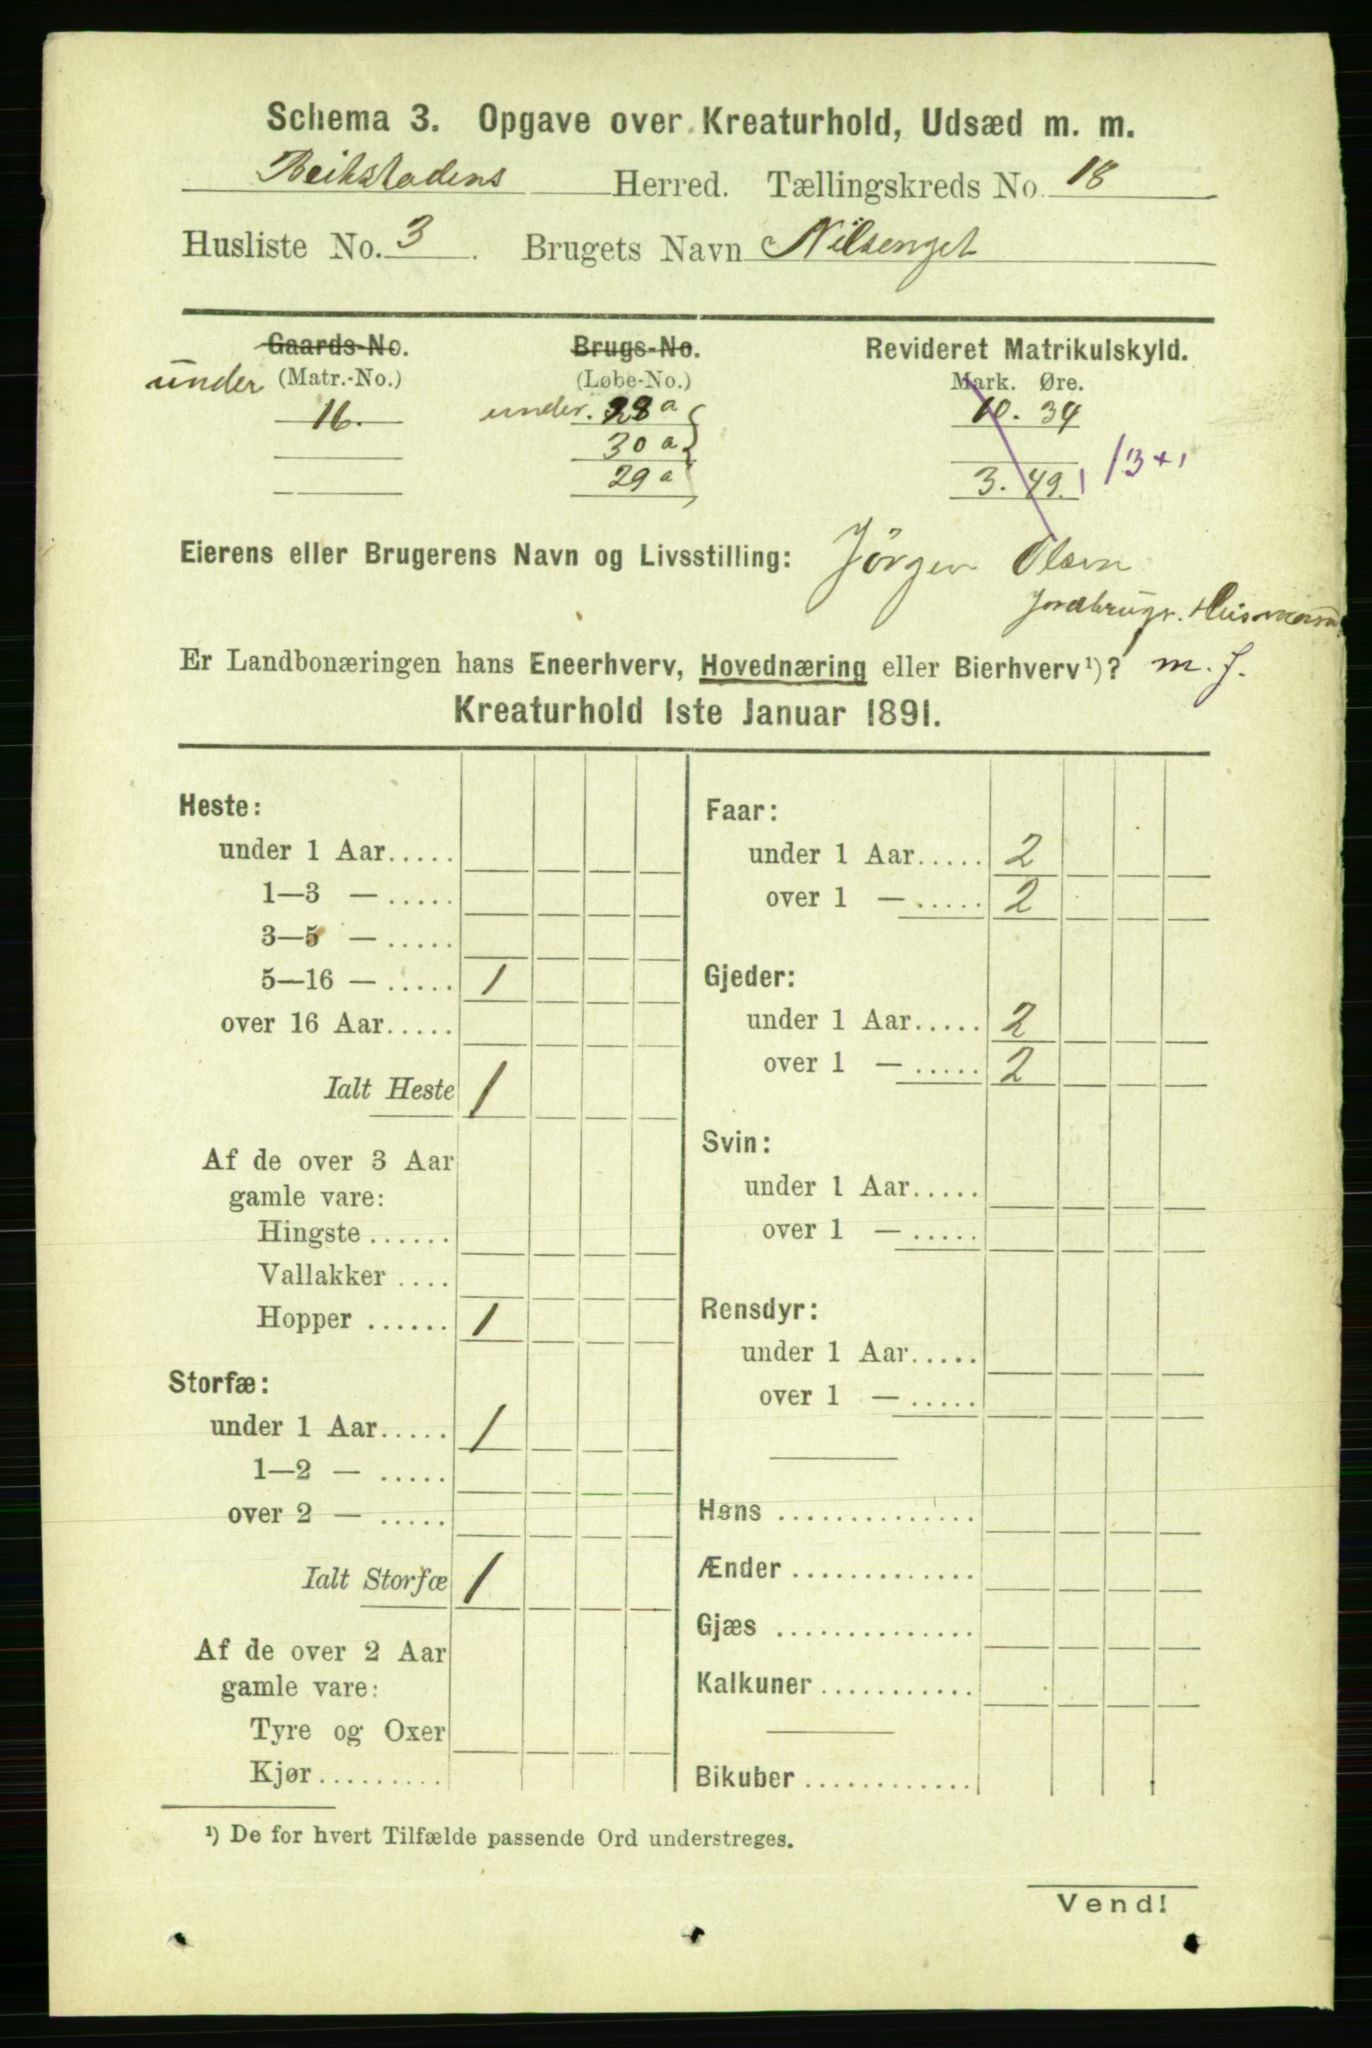 Schema 3. Opgave over Kreaturhold, Udsæd m. m.
Beitstadens Herred. Tællingskreds No. 18
Husliste No. 3. Brugets Navn Nilsenget
Gaards-No. Brugs-No. Revideret Matrikulskyld.
under (Matr.-No.) (Løbe-No.) Mark. Øre.
16. under. 28 a 10. 34
30 a
29 a 3. 49. /3 + 1
Eierens eller Brugerens Navn og Livsstilling: Jörgen Olsen
Jordbruger. Husmand
Er Landbonæringen hans Eneerhverv, Hovednæring eller Bierhverv¹)? m. J.
Kreaturhold 1ste Januar 1891.
Heste:
under 1 Aar.....
1—3 — .....
3—5 — .....
5—16 — ..... 1
over 16 Aar.....
Ialt Heste 1
Af de over 3 Aar
gamle vare:
Hingste ......
Vallakker ....
Hopper ...... 1
Storfæ:
under 1 Aar..... 1
1—2 — .....
over 2 — .....
Ialt Storfæ 1
Af de over 2 Aar
gamle vare:
Tyre og Oxer
Kjør.........
Faar:
under 1 Aar..... 2
over 1 — ..... 2
Gjeder:
under 1 Aar..... 2
over 1 — ..... 2
Svin:
under 1 Aar.....
over 1 — .....
Rensdyr:
under 1 Aar.....
over 1 — .....
Høns ..............
Ænder .............
Gjæs ..............
Kalkuner ...........
Bikuber .............
¹) De for hvert Tilfælde passende Ord understreges.
Vend!